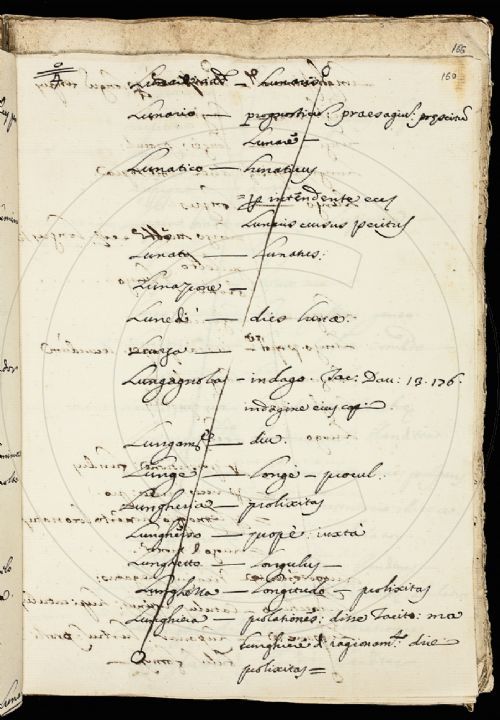 166
160
Lunario — prognosticũ: praesagiũ:
Lunare
Lunatico — lunaticus
intendente eius
Lunaris cursus peritus
Lunato — Lunatus:
Lunazione —
Lunedì — dies lunae.
Lungagnola — indago. Tac: Dav: 13. 176.
indagine eius
Lungamte — diu.
Lunge — longe — procul.
Lungheria — prolixitas
Lunghesso — propè, iuxtà
Lunghetto — longulus —
Lunghezza — Longitudo — prolixitas
Lunghiera — disse Tacito: ma
lunghiere d ragionamti dire
prolixitas =